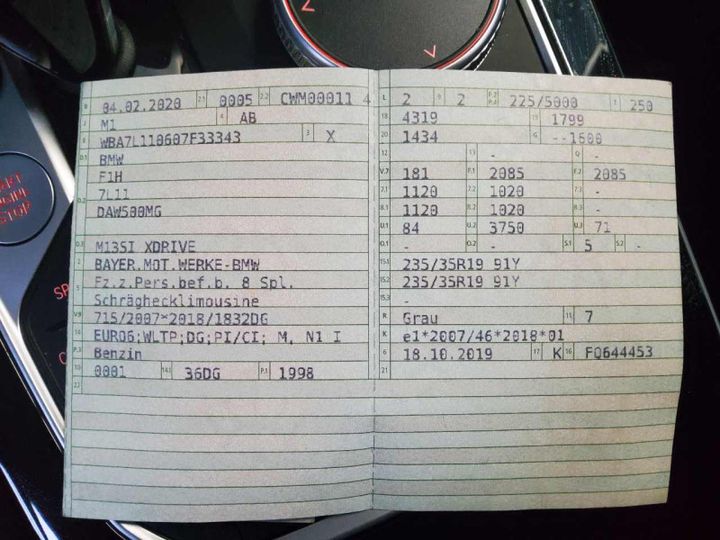 B 04.02.2020 2.1 0005 2.2 CWM00011 4
J M1 4 AB
E WBA7L110607F33343 3 X
D.1 BMW
F1H
D.2 7L11
DAW500MG
D.3 M135I XDRIVE
2 BAYER.MOT.WERKE-BMW
5 Fz.z.Pers.bef.b. 8 Spl.
Schräghecklimousine
V.9 715/2007*2018/1832DG
14 EURO6;WLTP;DG;PI/CI; M, N1 I
P.3 Benzin
10 0001 14.1 36DG P.1 1998
22
L 2 9 2 P.2 P.4 225/5000 T 250
18 4319 19 1799
20 1434 G --1600
12 - 13 - Q -
V.7 181 F.1 2085 F.2 2085
7.1 1120 7.2 1020 7.3 -
8.1 1120 8.2 1020 8.3 -
U.1 84 U.2 3750 U.3 71
O.1 - O.2 - S.1 5 S.2 -
15.1 235/35R19 91Y
15.2 235/35R19 91Y
15.3 -
R Grau 11 7
K e1*2007/46*2018*01
6 18.10.2019 17 K 16 FQ644453
21
START ENGINE STOP
SP